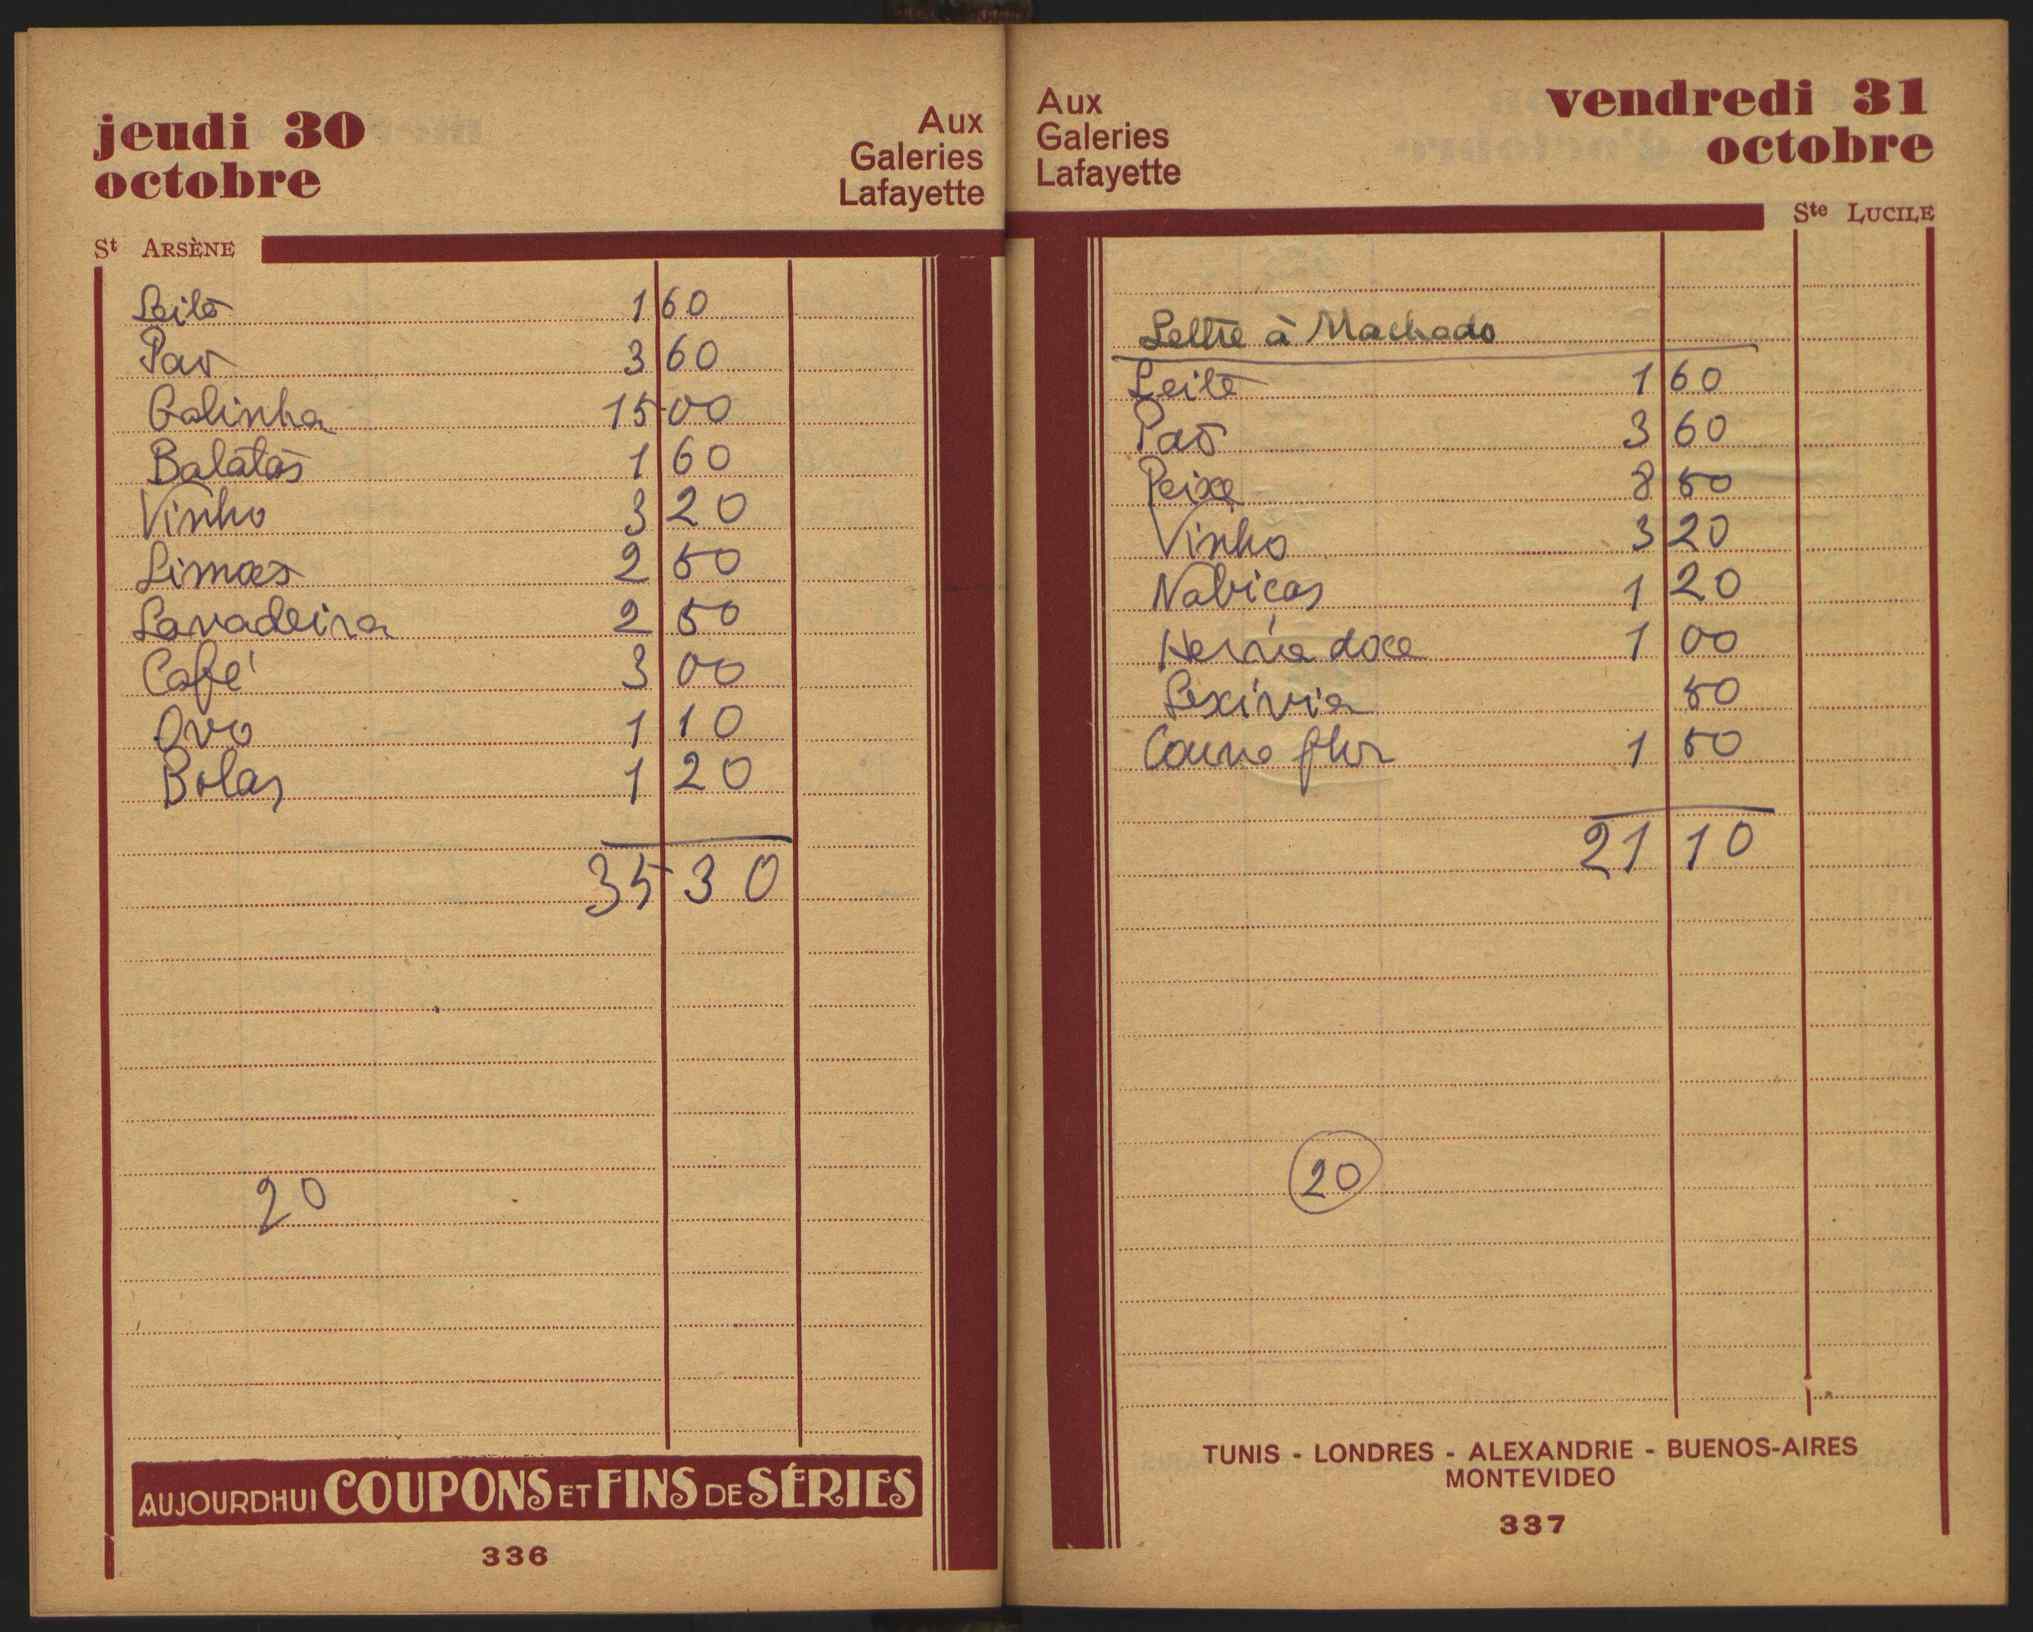 jeudi 30
octobre
Aux
Galeries
Lafayette
St ARSÈNE
Leite 1 60
Pão 3 60
Galinha 15 00
Batatas 1 60
Vinho 3 20
Limas 2 50
Lavadeira 2 50
Café 3 00
Ovo 1 10
Bolas 1 20
35 30
20
AUJOURDHUI COUPONS ET FINS DE SÉRIES
336
Aux
Galeries
Lafayette
vendredi 31
octobre
Ste LUCILE
Lettre à Machado
Leite 1 60
Pão 3 60
Peixe 8 50
Vinho 3 20
Nabiças 1 20
Herva doce 1 00
Lexivia 50
Couve flor 1 50
21 10
20
TUNIS - LONDRES - ALEXANDRIE - BUENOS-AIRES
MONTEVIDEO
337